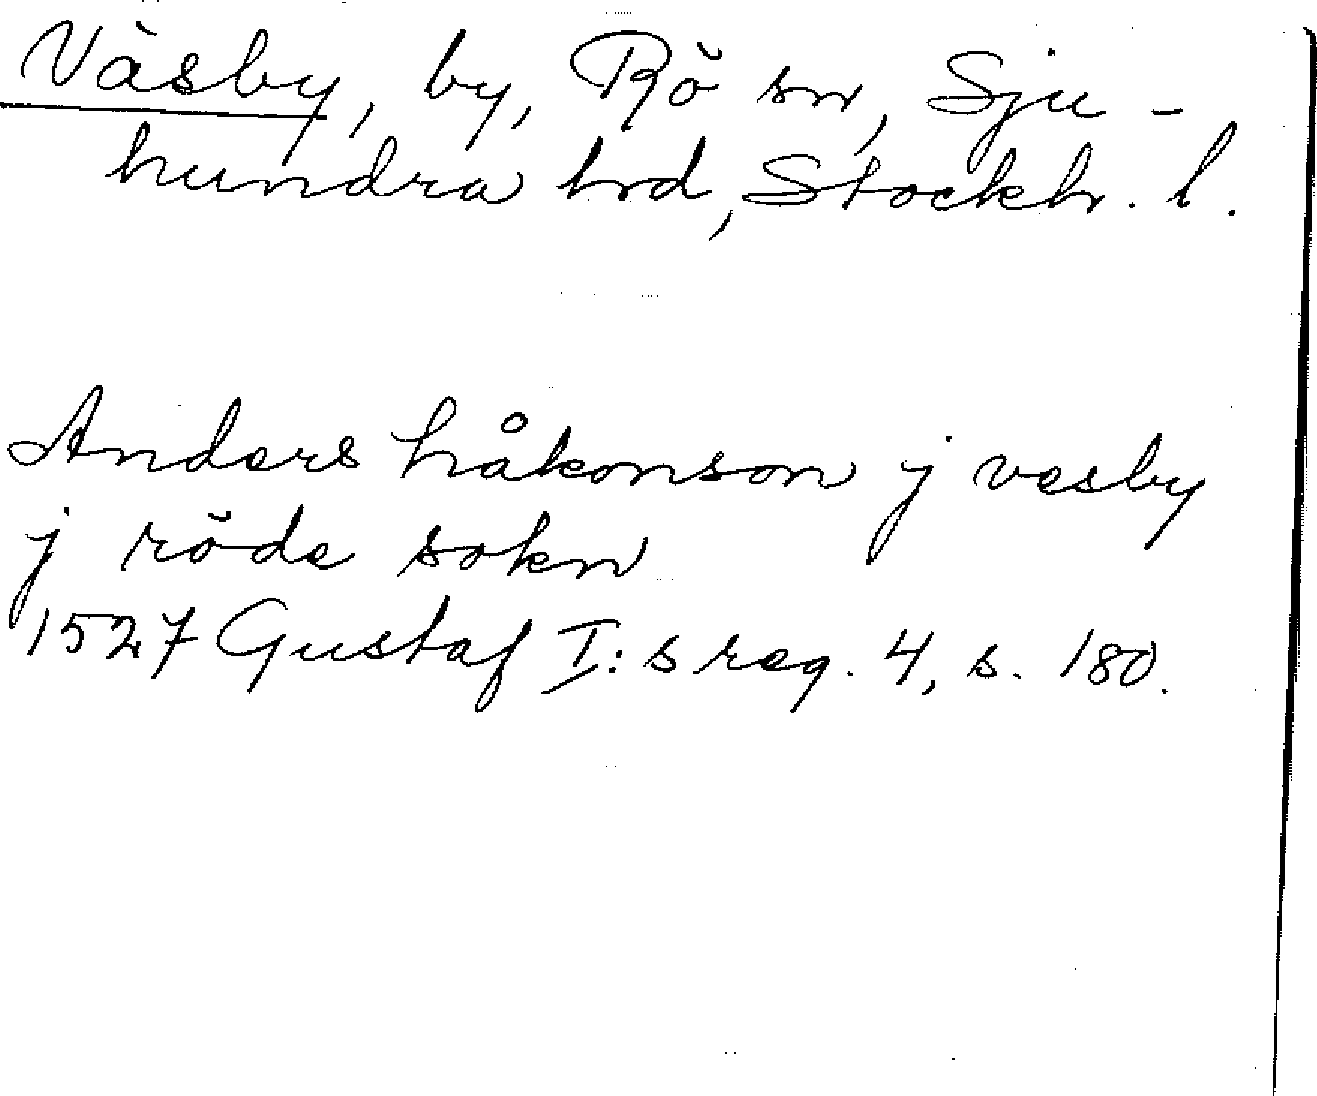 Väsby, by, Rö sn, Sju-
hundra hd, Stockh. l.
Anders håkonson j vesby
j röde sokn
1527 Gustaf I:s reg. 4, s. 180.